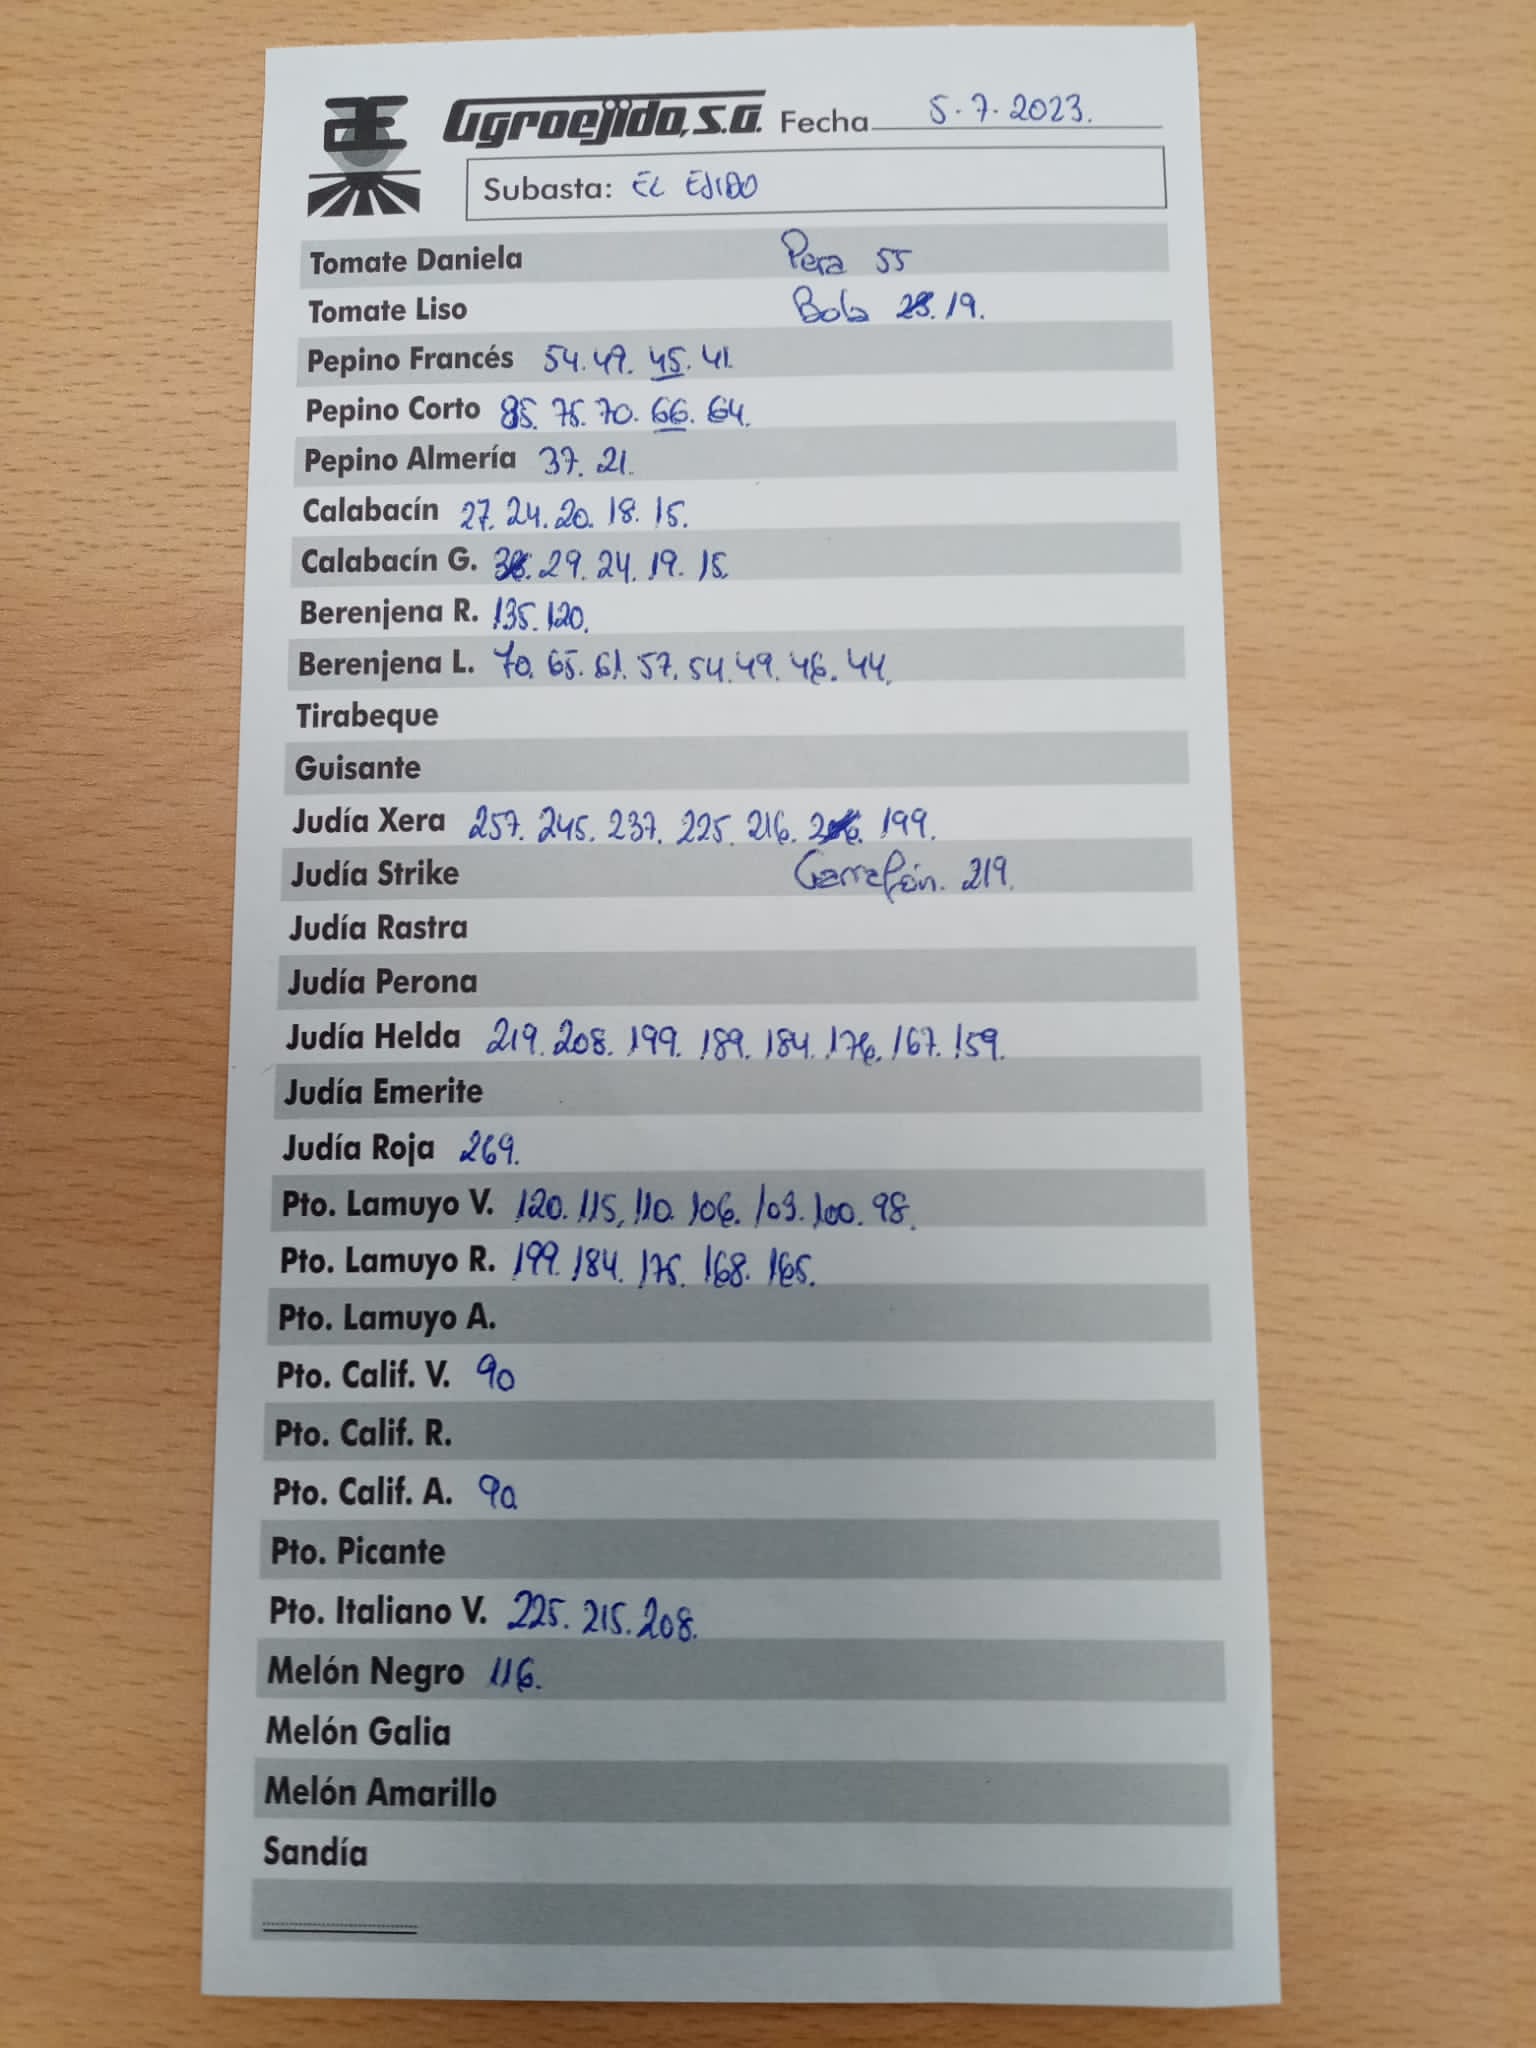 Agroejido, S.A. Fecha 5.7.2023.
Subasta: EL EJIDO
Tomate Daniela Pera 55
Tomate Liso Bola 19.
Pepino Francés 54.49.45.41.
Pepino Corto 85.75.70.66.64.
Pepino Almería 37.21.
Calabacín 27.24.20.18.15.
Calabacín G. 29.24.19.15.
Berenjena R. 135.120.
Berenjena L. 70.65.61.57.54.49.46.44.
Tirabeque
Guisante
Judía Xera 257.245.237.225.216. 199.
Judía Strike Garrafón. 219.
Judía Rastra
Judía Perona
Judía Helda 219.208.199.189.184.176.167.159.
Judía Emerite
Judía Roja 269.
Pto. Lamuyo V. 120.115.110.106.103.100.98.
Pto. Lamuyo R. 199.184.175.168.165.
Pto. Lamuyo A.
Pto. Calif. V. 90
Pto. Calif. R.
Pto. Calif. A. 90
Pto. Picante
Pto. Italiano V. 225.215.208.
Melón Negro 116.
Melón Galia
Melón Amarillo
Sandía